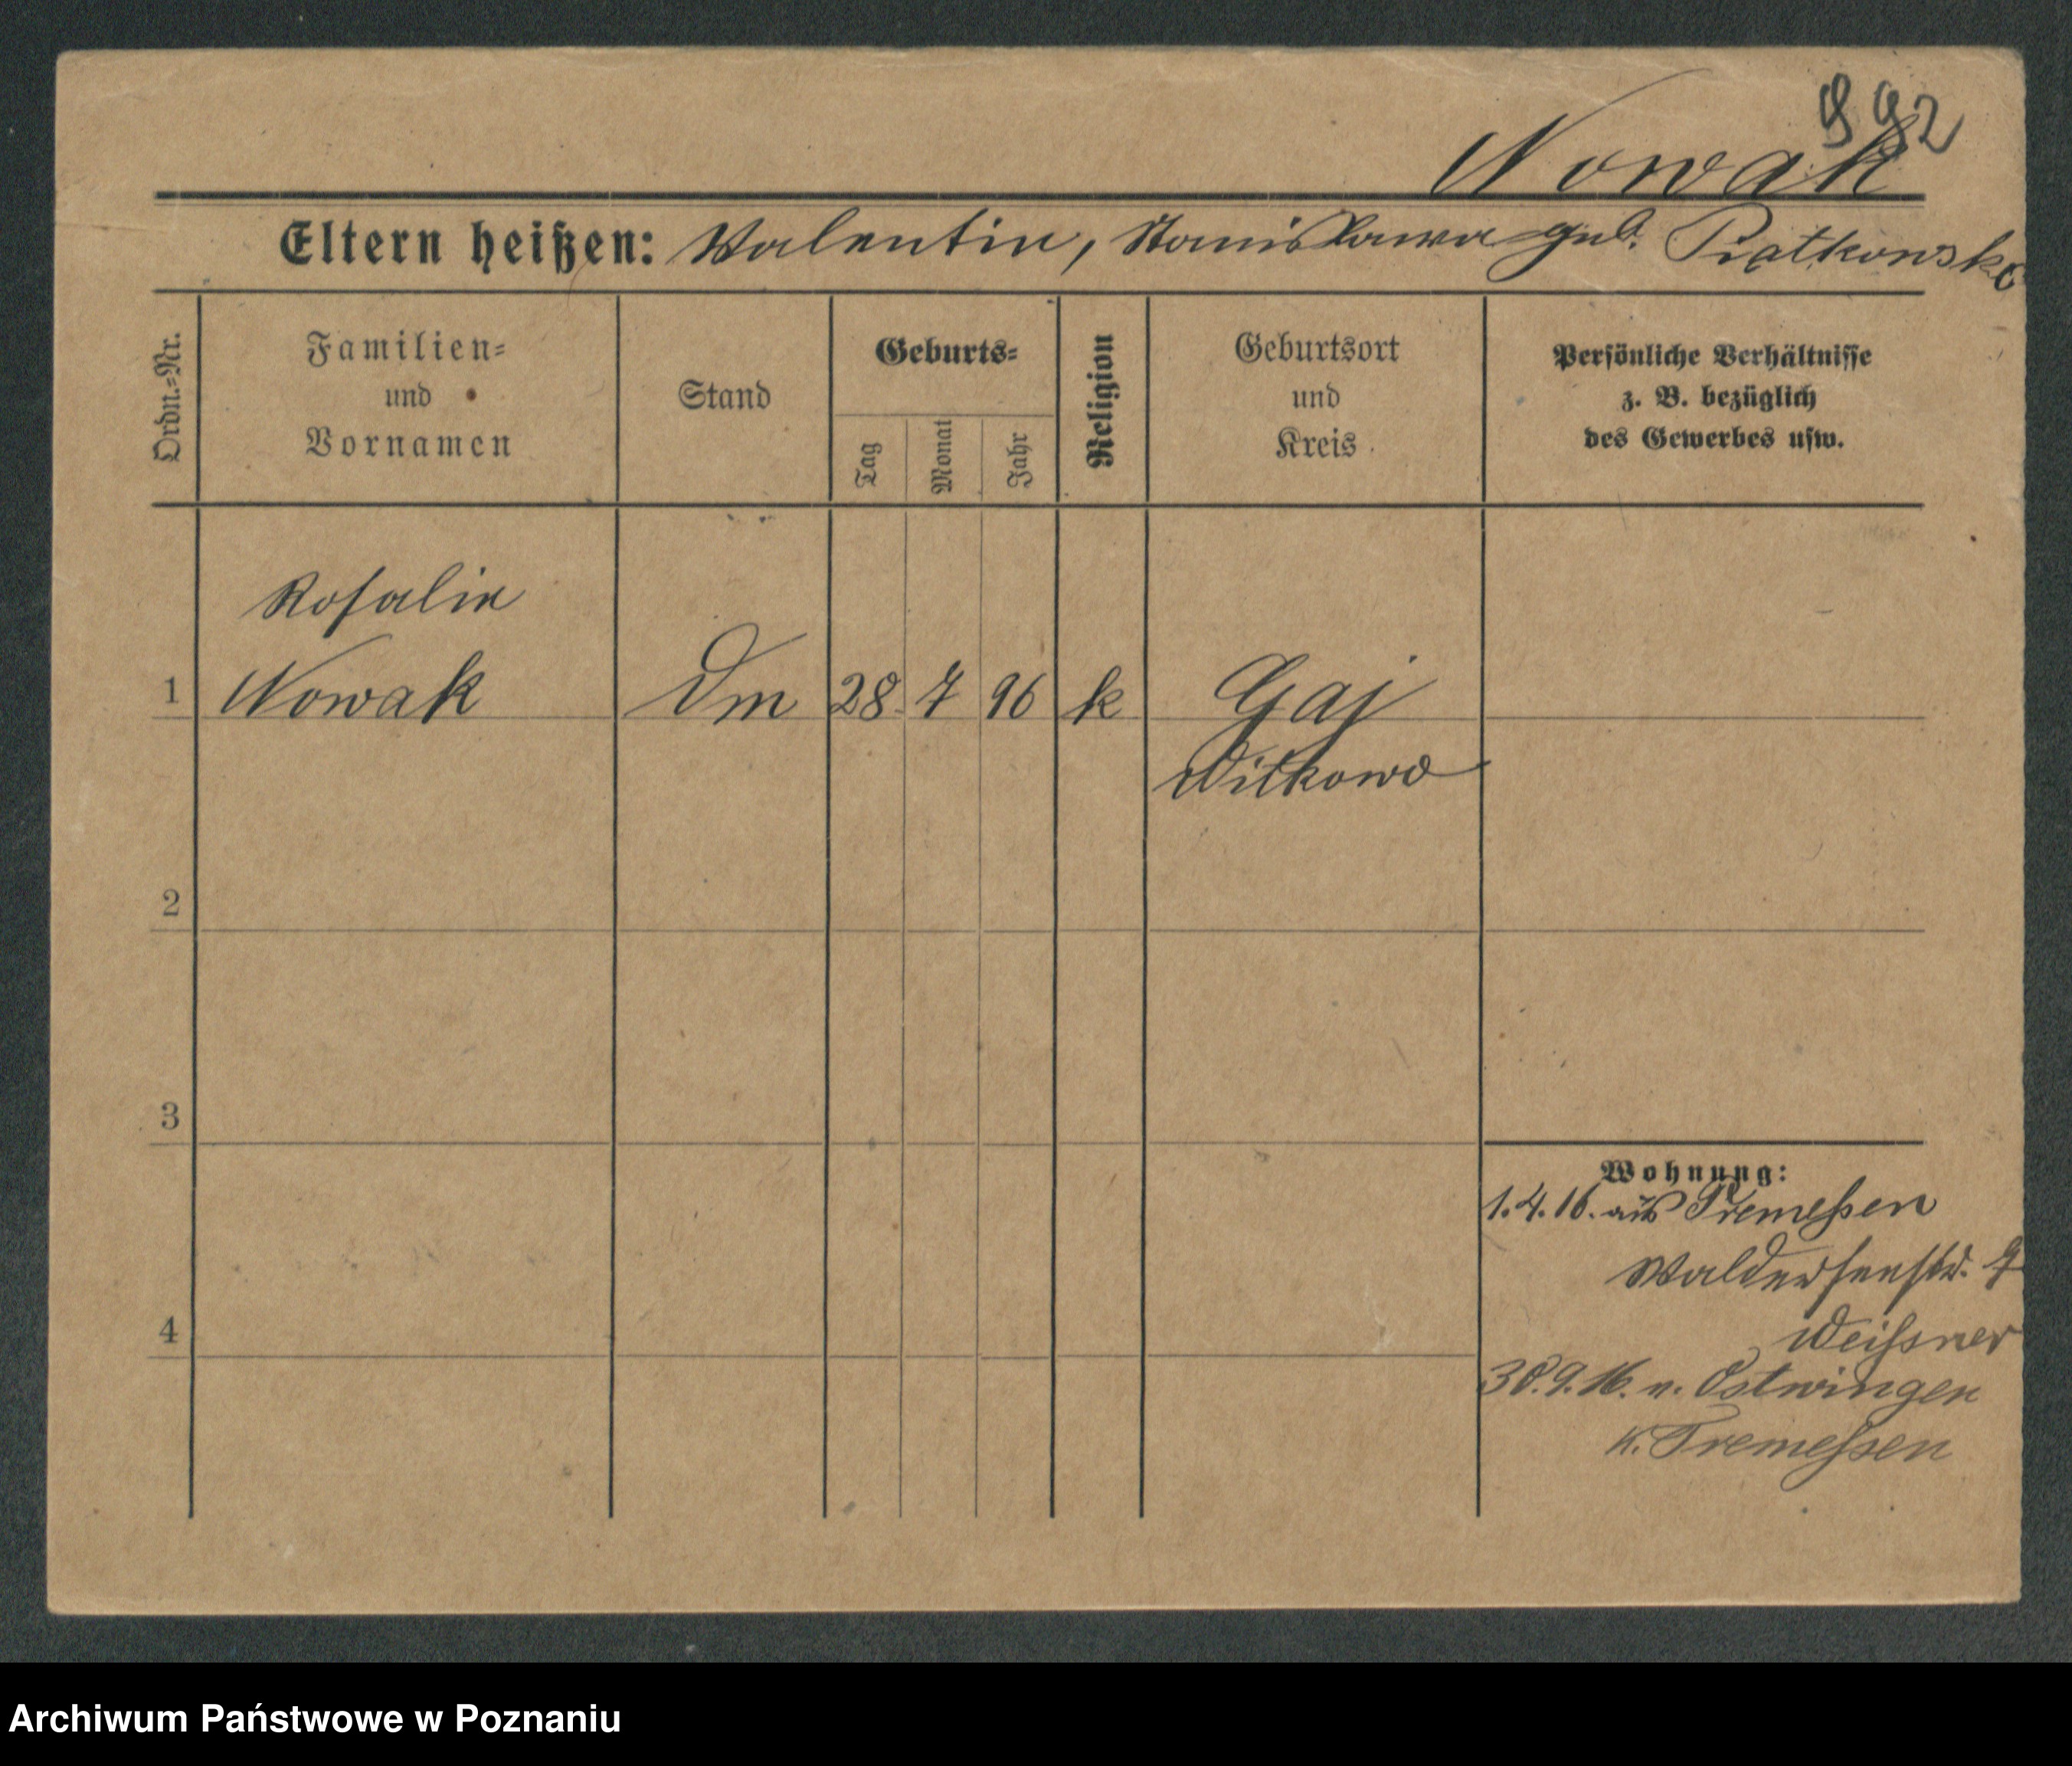 992
Nowak
Eltern heißen: Valentin, Stanislawa geb. Piątkowska
Ordn.-Nr.
Familien-
und
Vornamen
Stand
Geburts-
Tag
Monat
Jahr
Religion
Geburtsort
und
Kreis
Persönliche Verhältnisse
z. B. bezüglich
des Gewerbes usw.
Rosalie
1 Nowak Dm 28 7 96 k Gaj
Witkowo
2
3
4
Wohnung:
1.4.16. aus Tremessen
Walderseestr. 7
Weissner
30.9.16. n. Ostwingen
K. Tremessen
Archiwum Państwowe w Poznaniu